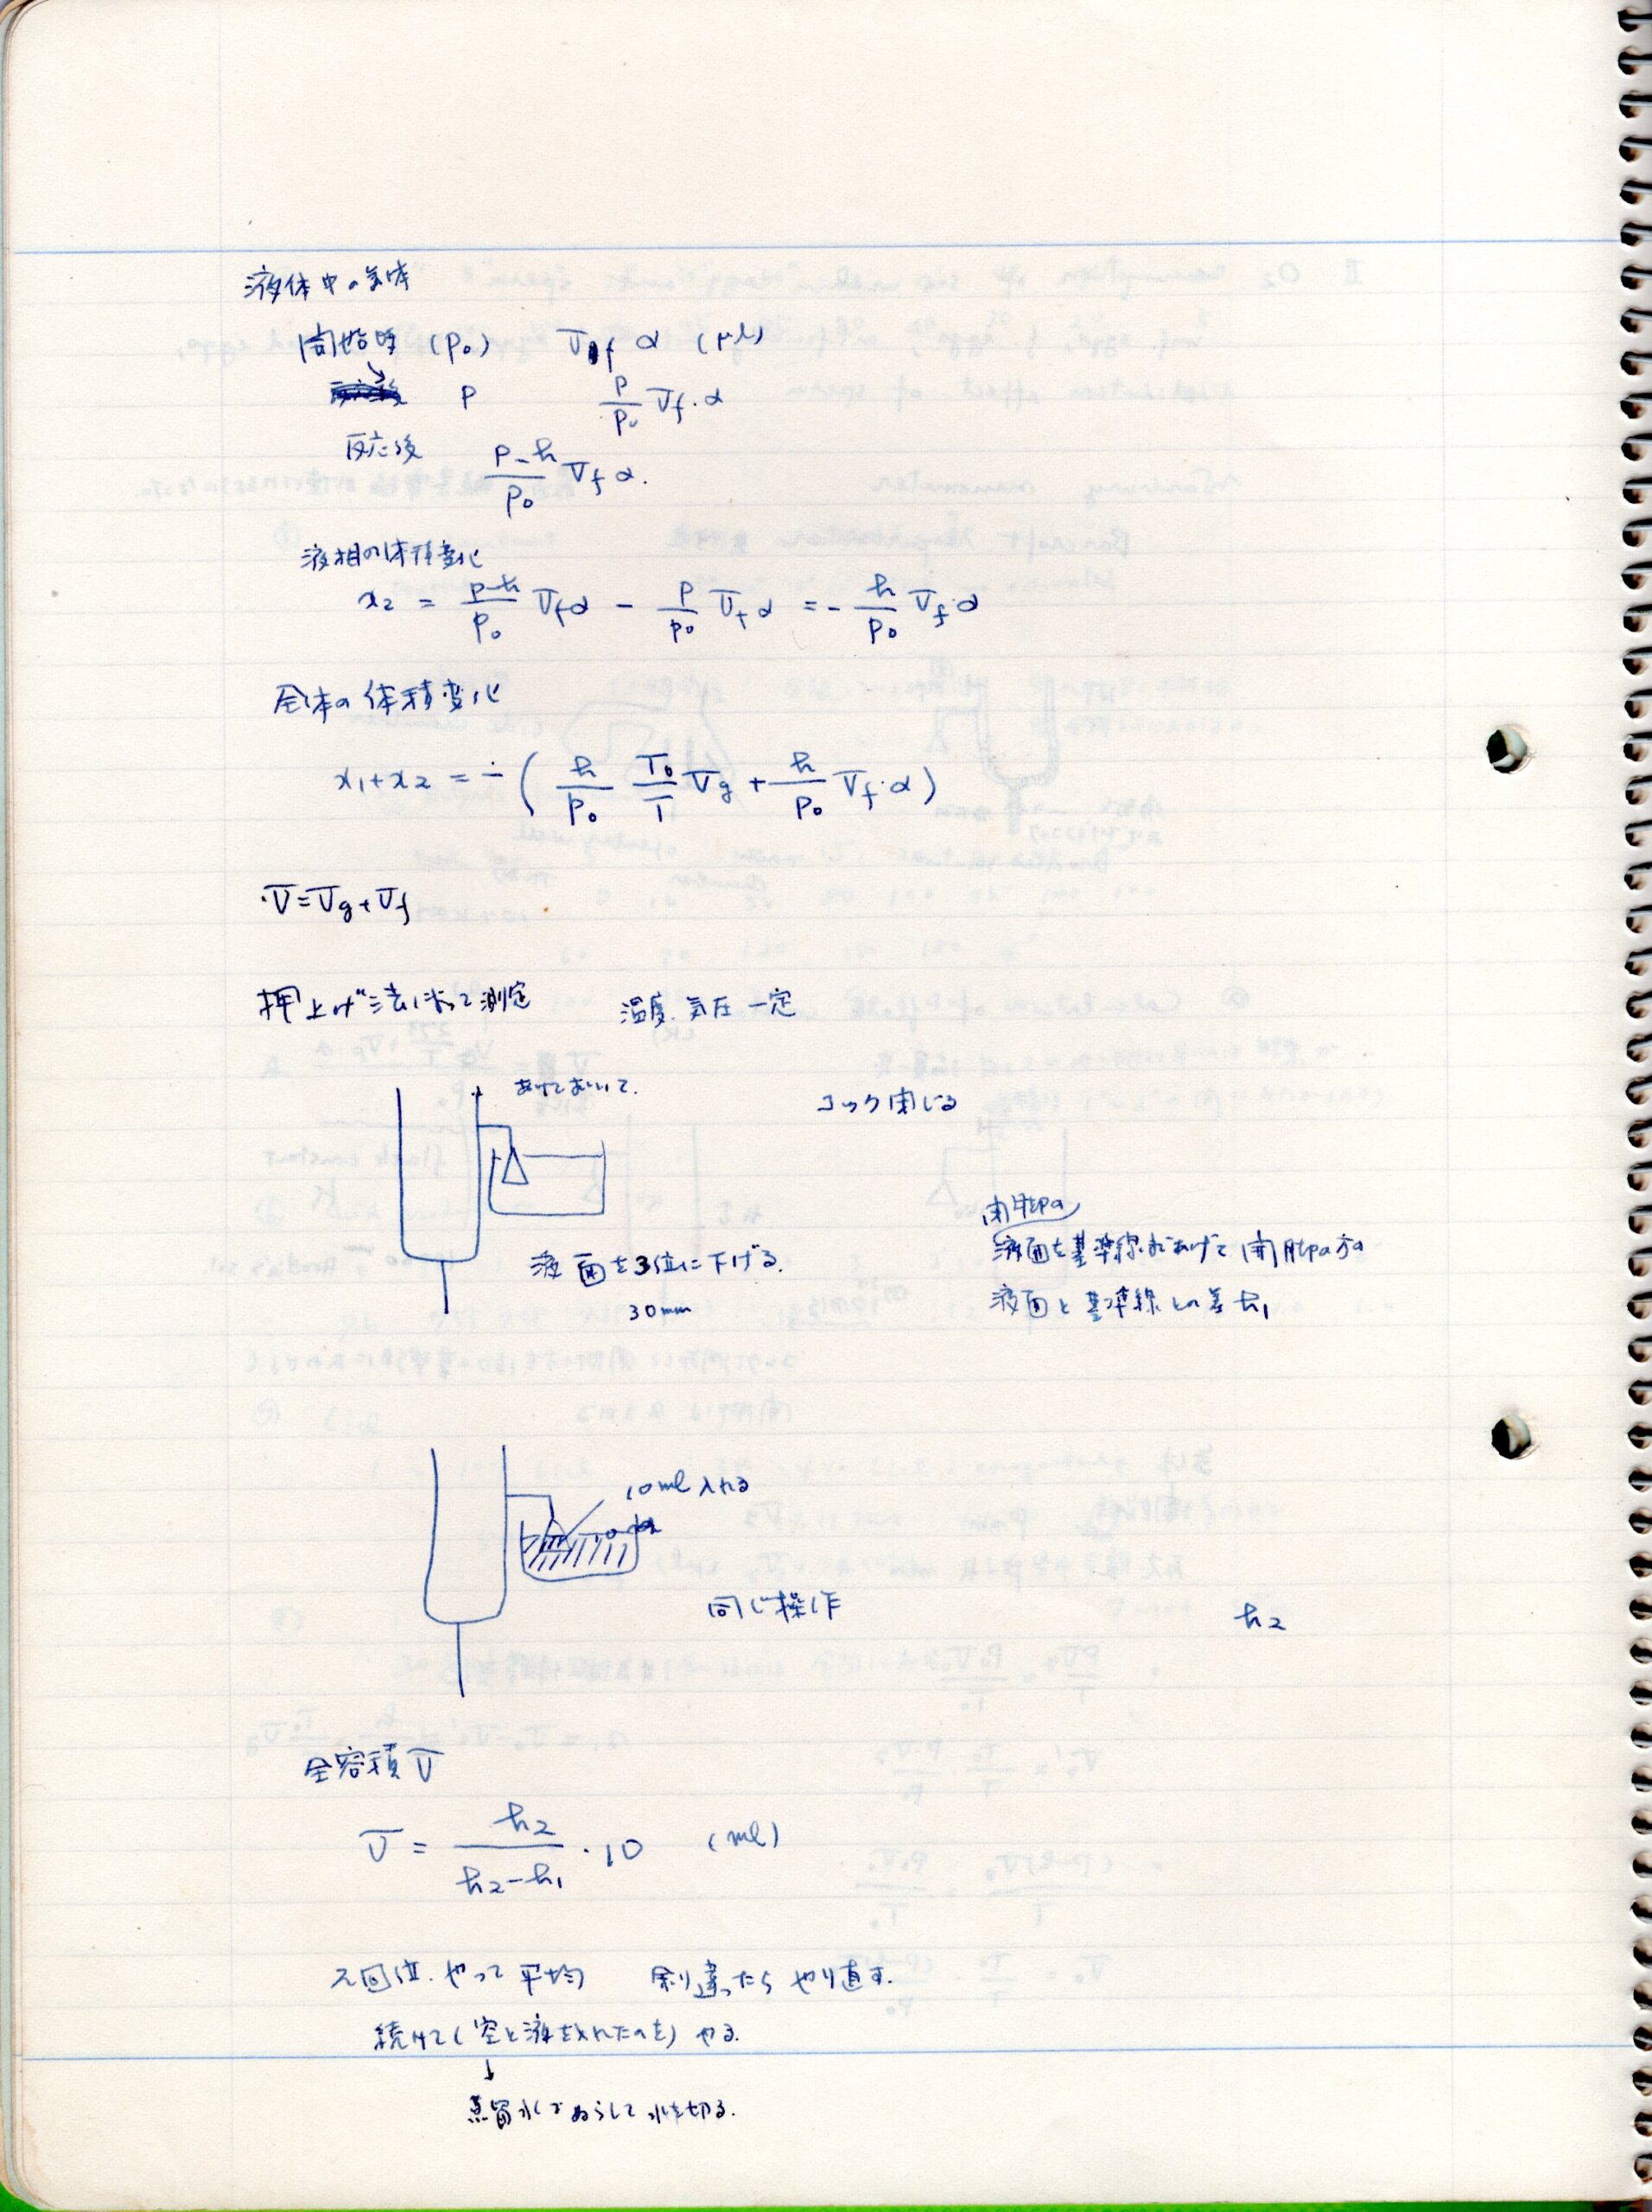 液体中の気体
開始時 (P₀) V_f α (μl)
P  P/P₀ V_f・α
反応後 (P-h)/P₀ V_f α.
液相の体積変化
x₂ = (P-h)/P₀ V_f α - P/P₀ V_f α = - h/P₀ V_f・α
全体の体積変化
x₁+x₂ = - ( h/P₀ T₀/T V_g + h/P₀ V_f・α )
・V=V_g+V_f
押上げ法に依って測定 温度、気圧一定
あけておいて. コック閉じる
閉脚の
液面を基準線まであげて 開脚の方の
液面を3位に下げる.
30mm
液面と基準線との差h₁
10ml入れる
同じ操作 h₂
全容積V
V = h₂/(h₂-h₁)・10 (ml)
2回位.やって平均 余り違ったらやり直す.
続けて(空と液を入れたのを)やる.
↓
蒸留水でぬらして水を切る.